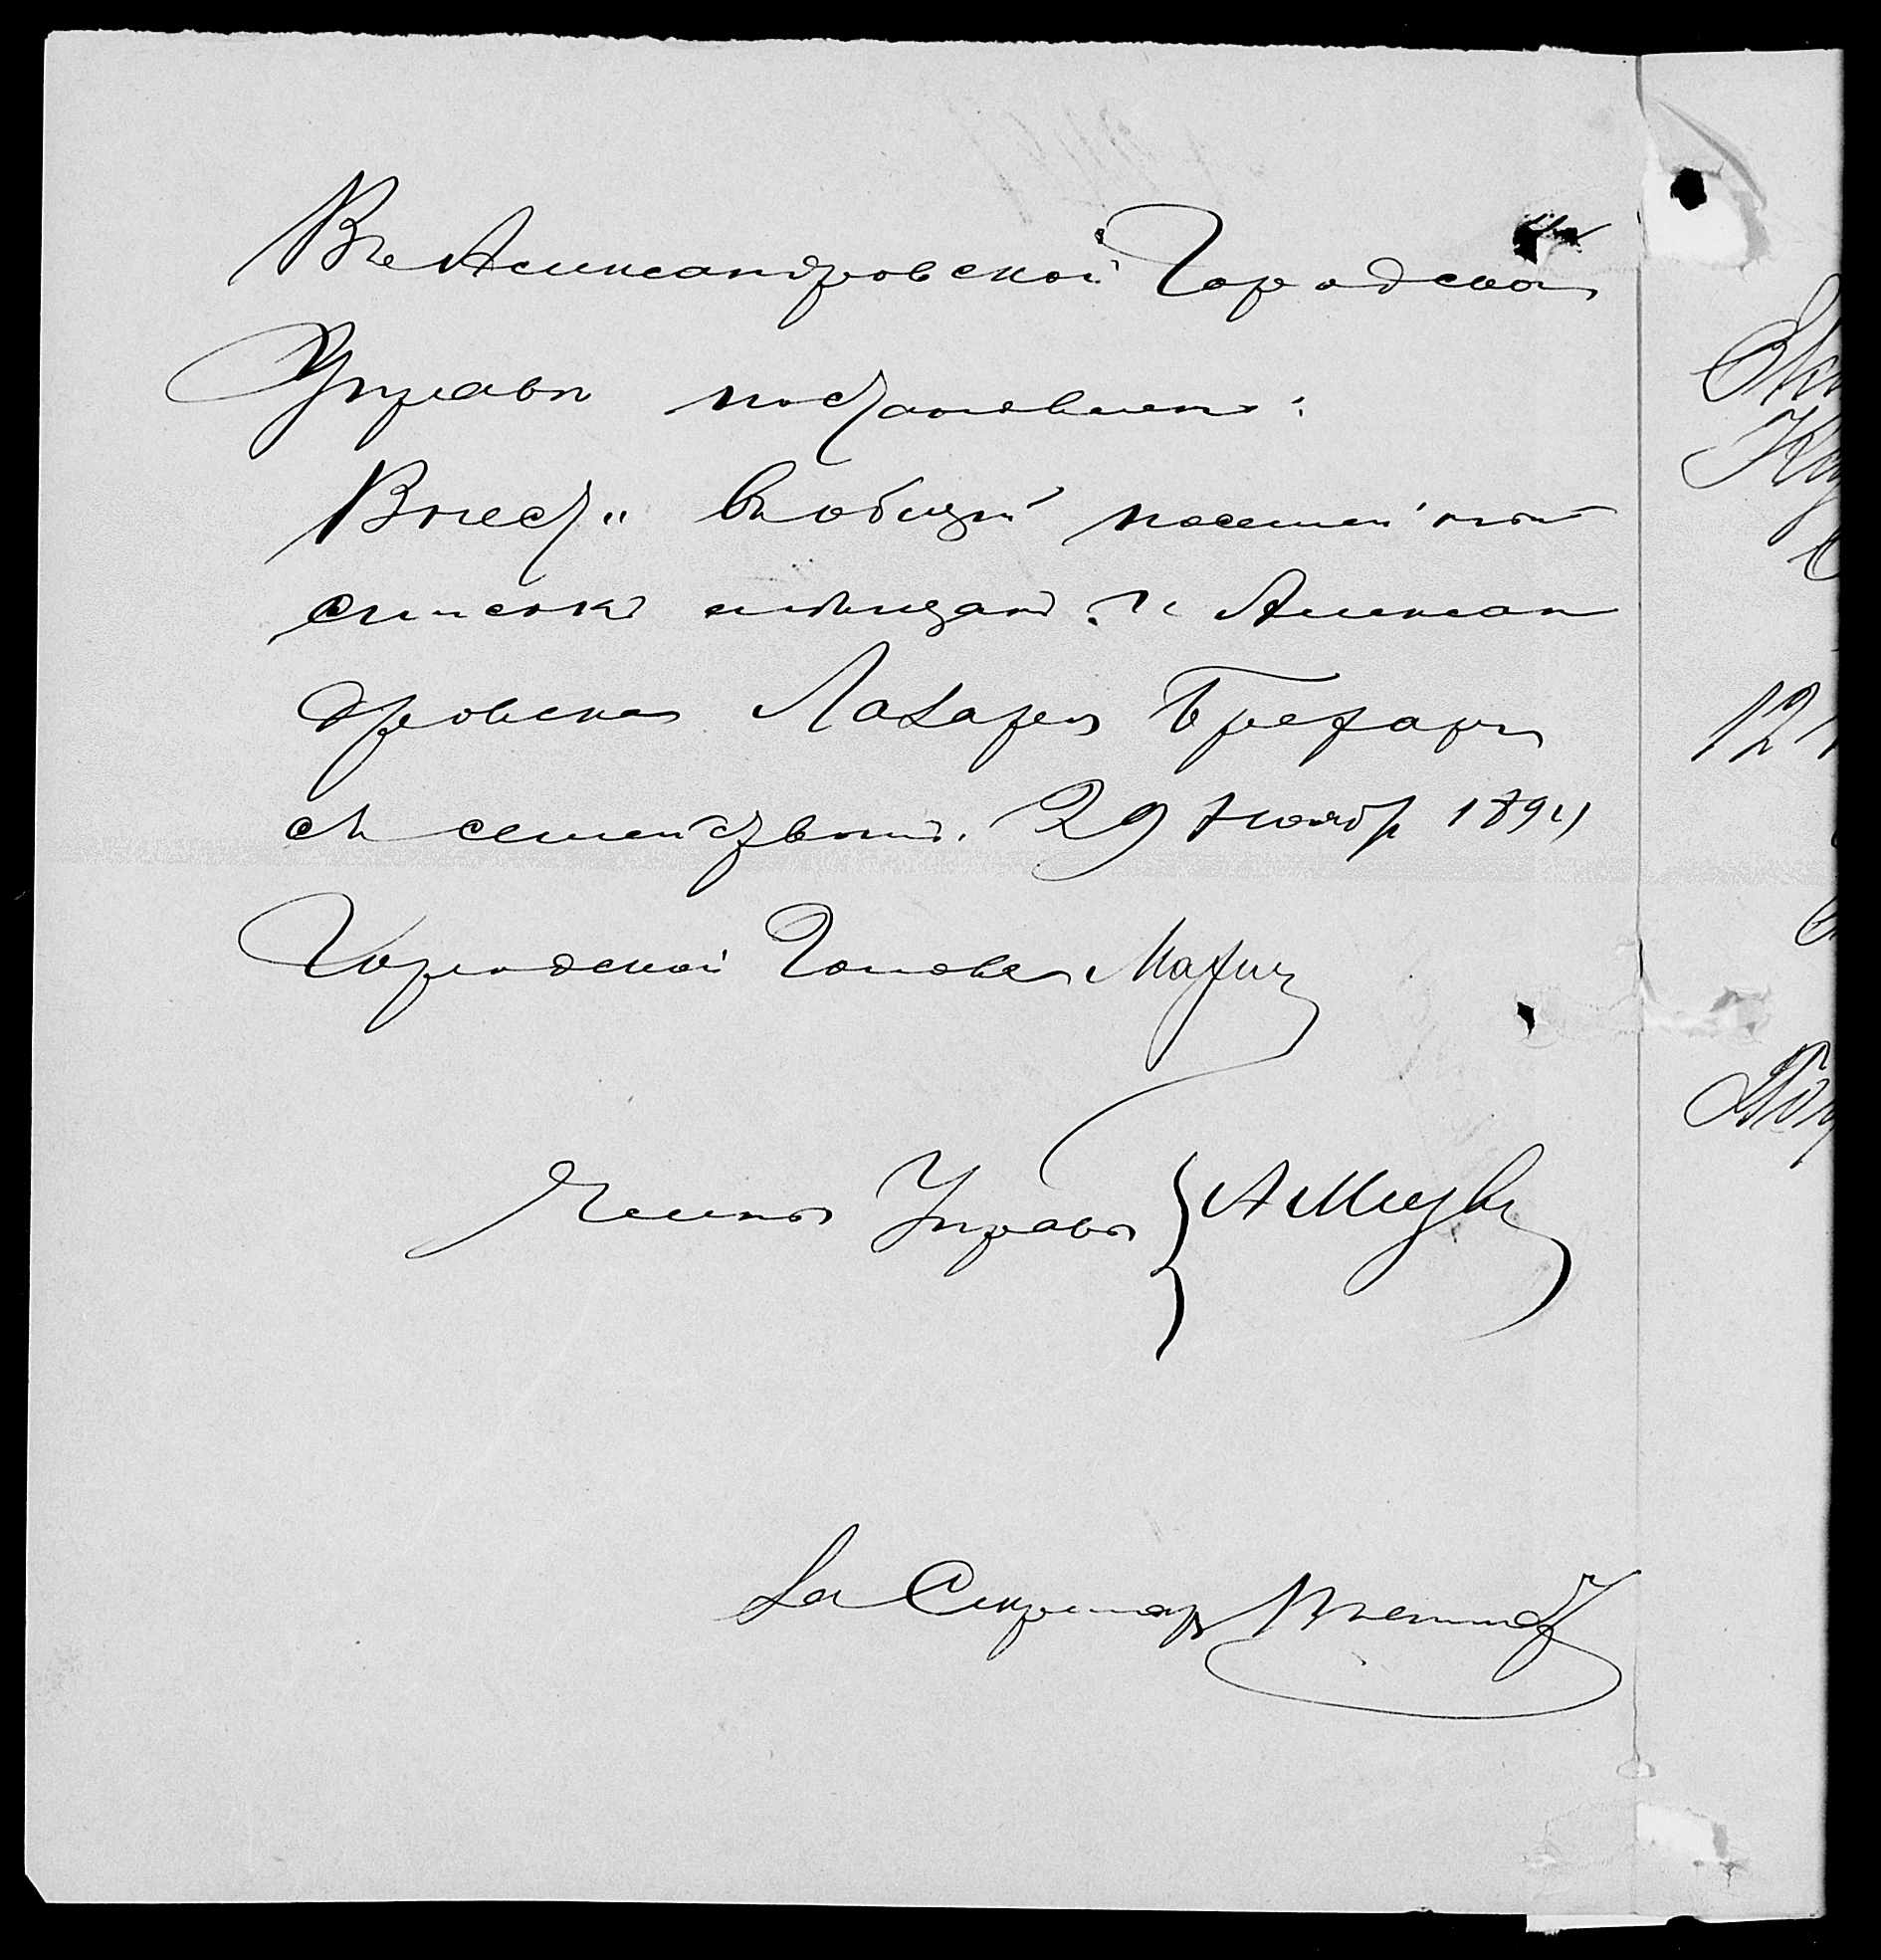 Въ Александровской Городской
Управѣ постановлено:
Внести въ общій посемейный
списокъ мѣщанъ г. Алексан
дровска Лазаря
съ семействомъ. 29 Ноябр 1894
Городской Голова
Члены Управы { А
За Секретаря
12